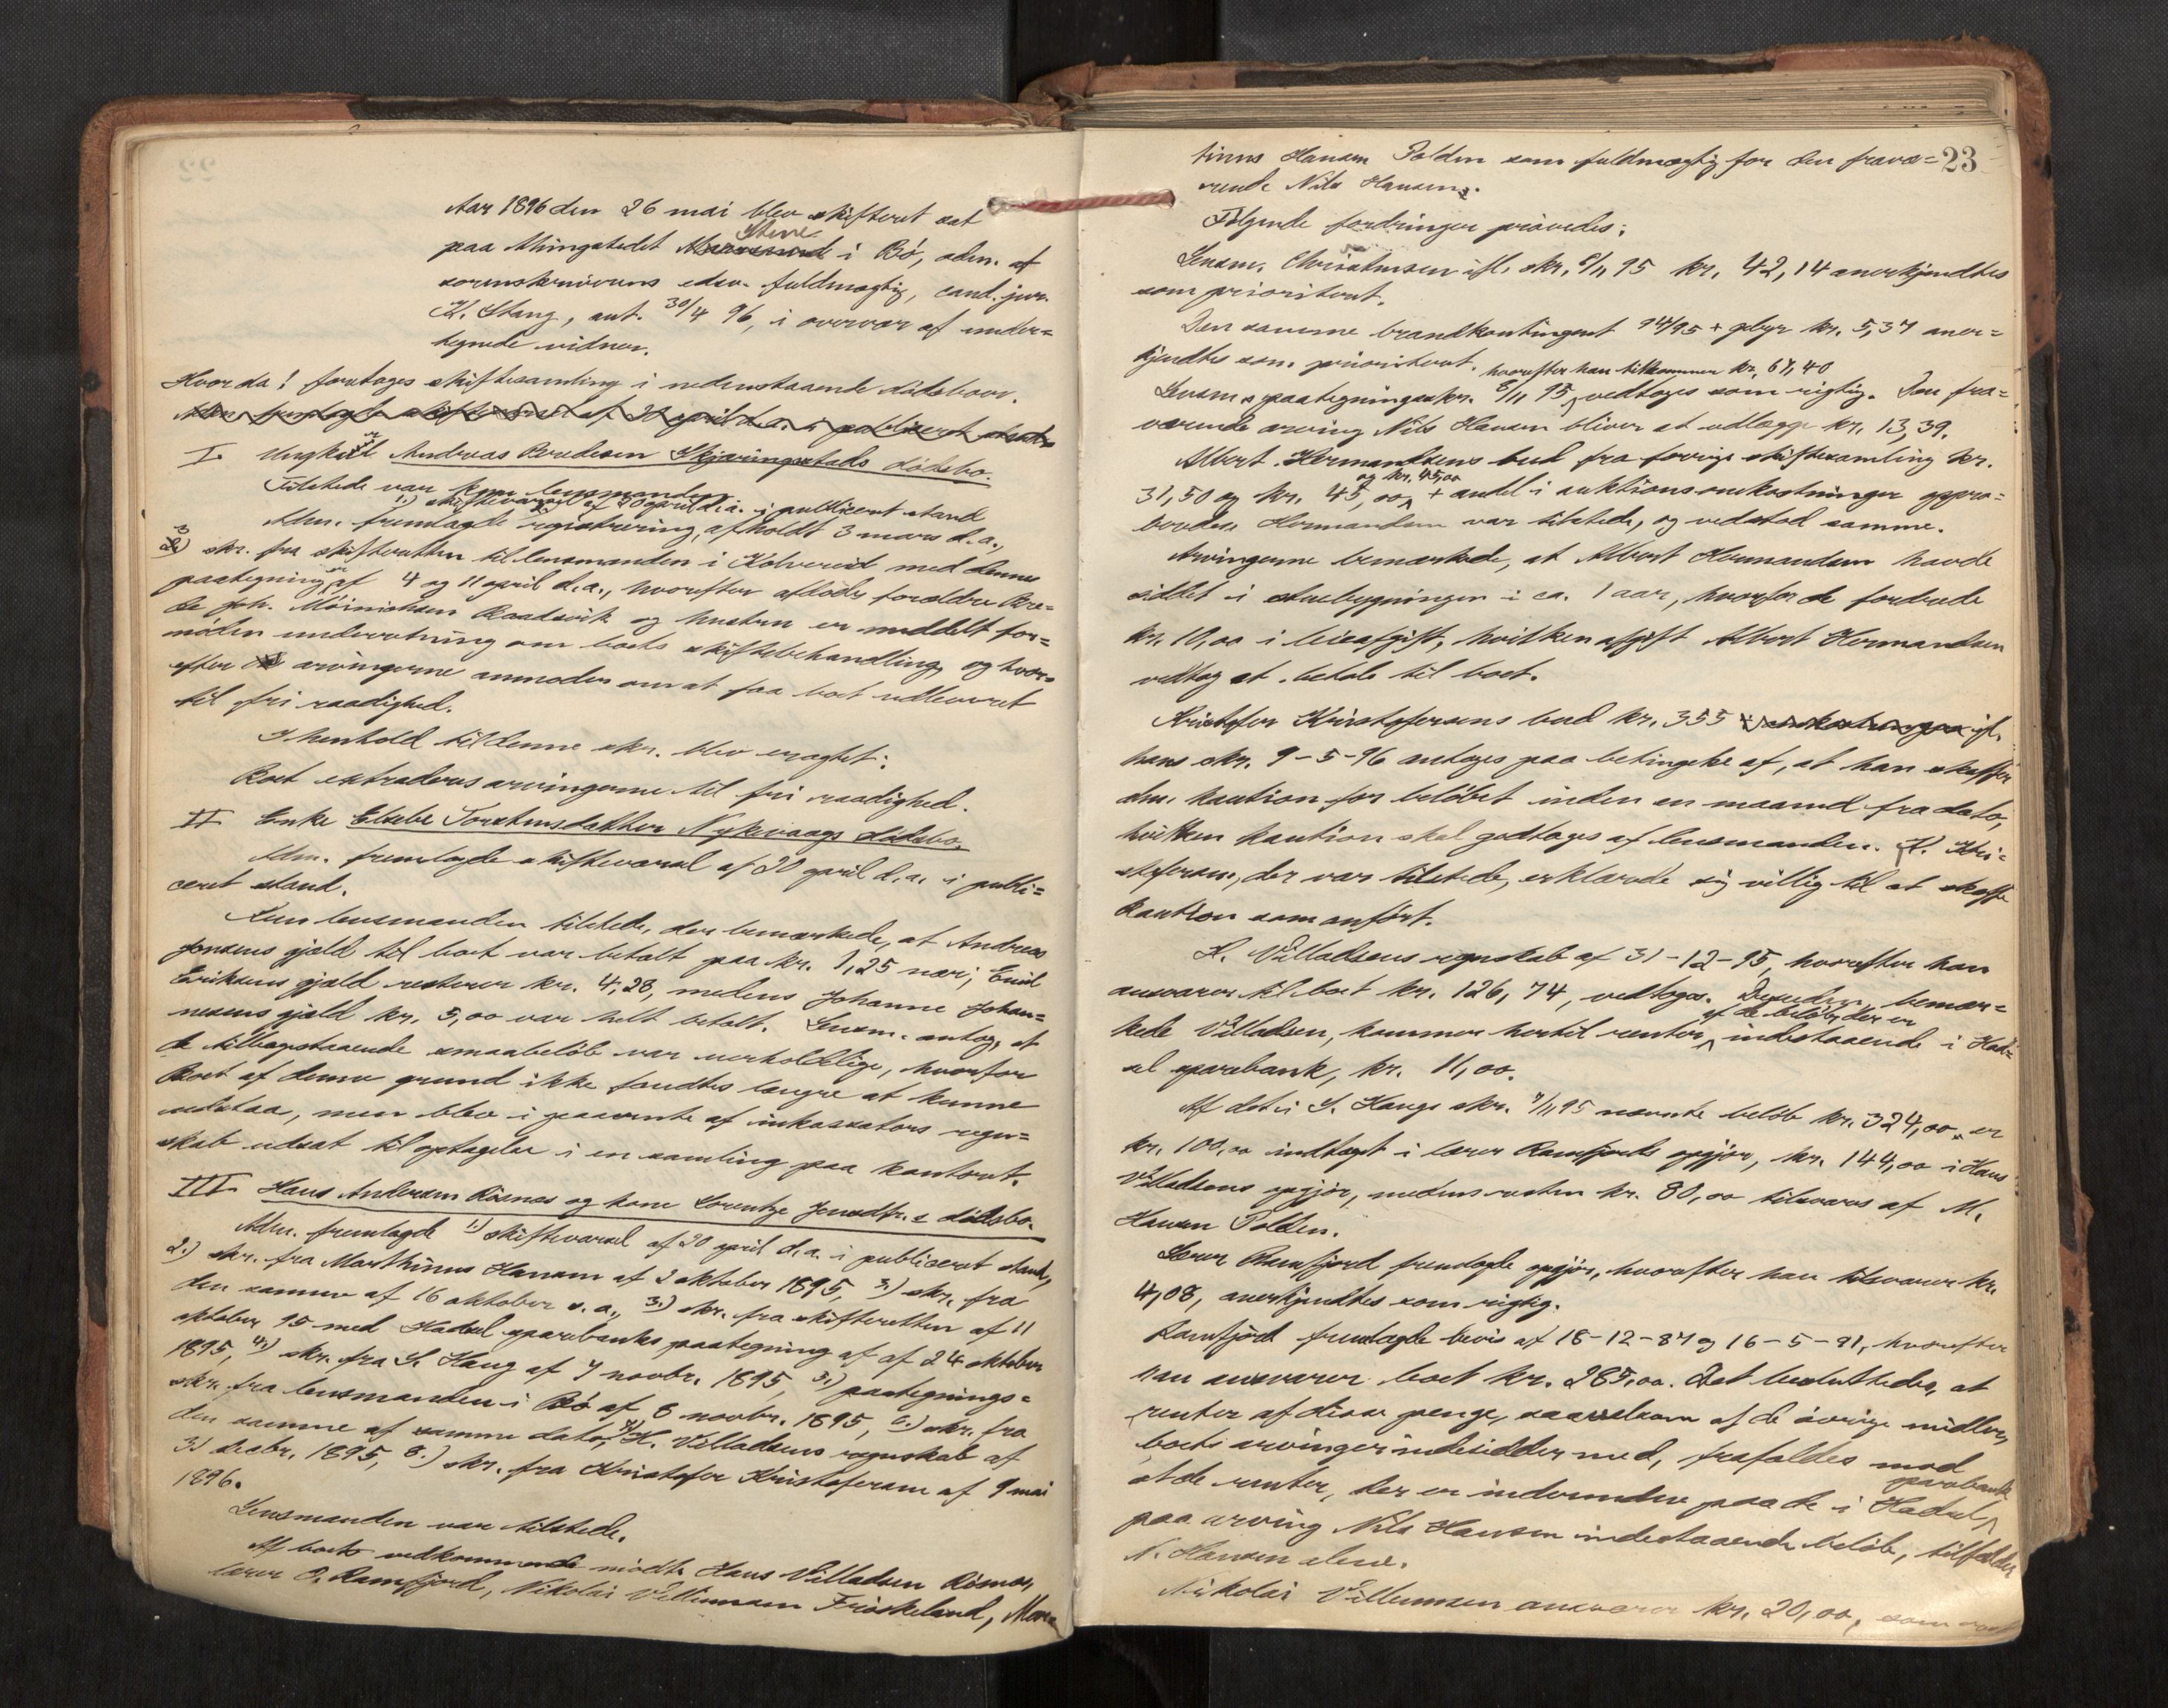 Aar 1896 den 26 mai blev skifteret sat
paa thingstedet Steine i Bø, adm. af
sorenskriverens edsv. fuldmægtig, cand. jur.
K. Stang, aut. 30/4 96, i overvær af under=
tegnede vidner.
Hvorda! foretoges skiftesamling i nedenstaaende dødsboer.
Adm. fremlagde skiftevarsel af 20 april d.a. i publiceret stand
I. Ungkarl Andreas Bredesen Skjæringstads dødsbo.
Tilstede var kun lensmanden
1.) skiftevarsel af 20 april d.a. i publiceret stand
Adm. fremlagde registrering, afholdt 3 mars d.a.,
3) skr. fra skifteretten til lensmanden i Kolvereid med dennes
paategninger af 4 og 11 april d.a., hvorefter afdødes forældre Bre=
de Joh. Mörinchsen Raadsvik og hustru er meddelt for=
møden underretning om boets skiftebehandling, og hvor=
efter arvingerne anmoder om at faa boet udleveret
til fri raadighed.
I henhold til denne skr. blev eragtet:
Boet extraderes arvingerne til fri raadighed.
II Enke Elsebe Torstensdatter Nykvaags dødsbo.
Adm. fremlagde skiftevarsel af 20 april d.a. i publi=
ceret stand.
Kun lensmanden tilstede, der bemærkede, at Andreas
Jensens gjæld til boet var betalt paa kr. 1,25 nær; Emil
Eriksens gjæld resterer kr. 4,28, medens Johanne Johan=
nesens gjæld kr. 5,00 var helt betalt. Lensm. antog, at
de tilbagestaaende smaabeløb var uerholdelige, hvorfor
Boet af denne grund ikke fandtes længere at kunne
udstaa, men blev i paavente af inkassators regn=
skab udsat til optagelse i en samling paa kontoret.
III Hans Andersen Risnes og kone Lorentze Jensdtr.s dødsbo.
Adm. fremlagde 1.) skiftevarsel af 20 april d.a. i publiceret stand,
2.) skr. fra Marthinus Hansen af 2 oktober 1895, 3.) skr. fra
den samme af 16 oktober s.a., 3.) skr. fra skifteretten af 11
oktober 95 med Hadsel sparebanks paategning af af 24 oktober
1895, 4.) skr. fra S. Haug af 7 novbr. 1895, 5.) paategnings=
skr. fra lensmanden i Bø af 8 novbr. 1895, 6.) skr. fra
den samme af samme dato, 7.) H. Villadsens regnskab af
31 decbr. 1895, 8.) skr. fra Kristofer Kristofersen af 9 mai
1896.
Lensmanden var tilstede.
Af boets vedkommende mødte Hans Villadsen Risnes,
lærer O. Ramfjord, Nikolai Villumsen Friskeland, Mar=
23
tinus Hansen Polden som fuldmægtig for den fravæ=
rende Nils Hansen.
Følgende fordringer prøvedes:
Lensm. Christensen ifl. skr. 8/11 95 kr. 42,14 anerkjendtes
som prioriteret.
Den samme brandkontingent 94/95 + gebyr kr. 5,37 aner=
kjendtes som prioriteret.
hvorefter han tilkommer kr. 67,40
Lensm.s paategningsskr. 8/11 95, vedtoges som rigtig. Den fra=
værende arving Nils Hansen bliver at udlægge kr. 13,39.
Albert Hermandsens bud fra forrige skiftesamling kr.
og kr. 45,00
31,50 og kr. 45,00 + andel i auktionsomkostninger appro=
beredes. Hermandsen var tilstede, og vedstod samme.
Arvingerne bemærkede, at Albert Hermandsen havde
siddet i stuebygningen i ca. 1 aar, hvorfor de fordrede
kr. 10,00 i leieafgift, hvilken afgift Albert Hermandsen
vedtog at betale til boet.
Kristofer Kristofersens bud kr. 355 + omkostninger ifl.
hans skr. 9-5-96 antoges paa betingelse af, at han skaffer
adm. kaution for beløbet inden en maaned fra dato,
hvilken kaution skal godtages af lensmanden. K. Kri=
stofersen, der var tilstede, erklærede sig villig til at skaffe
kaution som anført.
H. Villadsens regnskab af 31-12-95, hvorefter han
ansvarer til boet kr. 126,74, vedtoges. Desuden, bemær=
af de beløb, der er
kede Villadsen, kommer hertil renter, indestaaende i Had=
sel sparebank, kr. 11,00.
Af det i S. Haugs skr. 7/11 95 nævnte beløb kr. 324,00, er
kr. 100,00 indtaget i lærer Ramfjords opgjør, kr. 144,00 i Hans
Villadsens opgjør, medens resten kr. 80,00 tilsvares af M.
Hansen Polden.
Lærer Ramfjord fremlagde opgjør, hvorefter han tilsvarer kr.
4,08, anerkjendtes som rigtig.
Ramfjord fremlagde bevis af 18-12-87 og 16-5-91, hvorefter
han ansvarer boet kr. 285,00. Det besluttedes, at
renter af disse penge, saavelsom af de øvrige midler,
boets arvinger indesidder med, frafaldes mod
sparebank
at de renter, der er inderundne paa de i Hadsel
paa arving Nils Hansen indestaaende beløb, tilfalder
N. Hansen alene.
Nikolai Villumsen ansvarer kr. 20,00, som